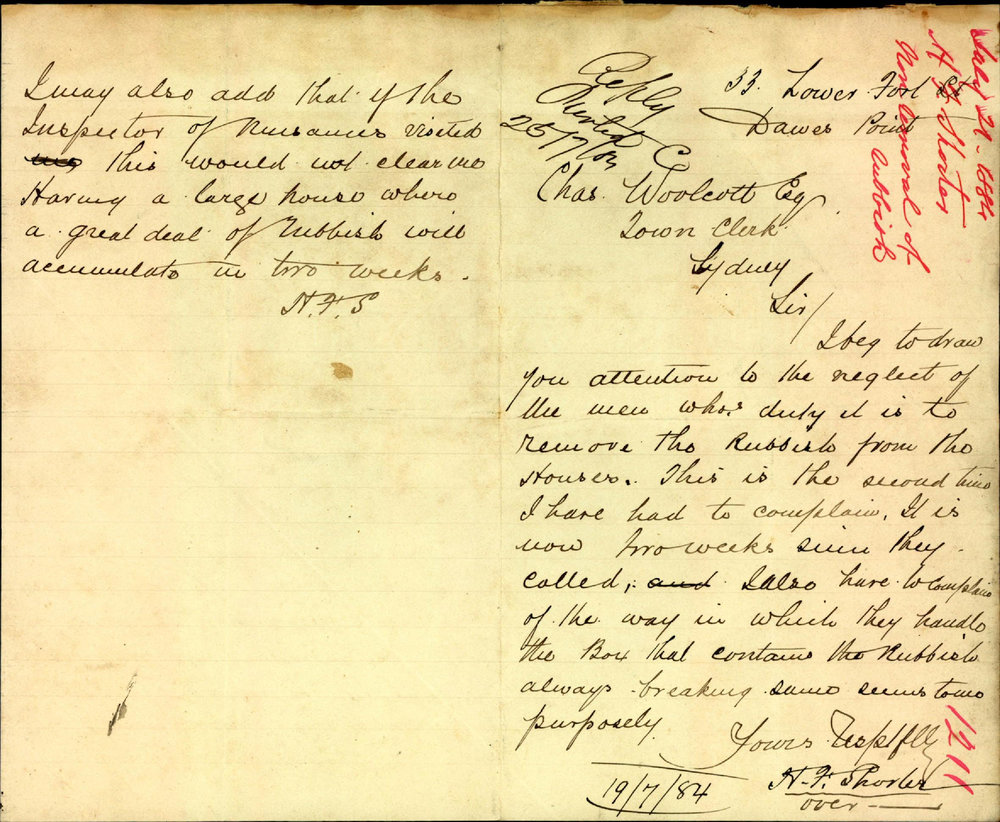 33 Lower Fort St
Dawes Point
Reply
25/7/
Chas. Woolcott Esq
Town Clerk
Sydney
Sir/
I beg to draw
you attention to the neglect of
the men whos duty it is to
remove the Rubbish from the
Houses. This is the second time
I have had to complain. It is
now two weeks sinn they
called, and I also have to complain
of the way in which they handle
the Box that contains the Rubbish
always breaking same seems to me
purposely.
Yours Respt flly
H. F. Shorter
19/7/84
over
I may also add that if the
Inspector of Nuisances visited
me this would not clear me
Having a large house where
a great deal of Rubbish will
accumulate in two weeks.
H. F. S
July 21. 1884
H F Shorter
Non Removal of
Rubbish
1211